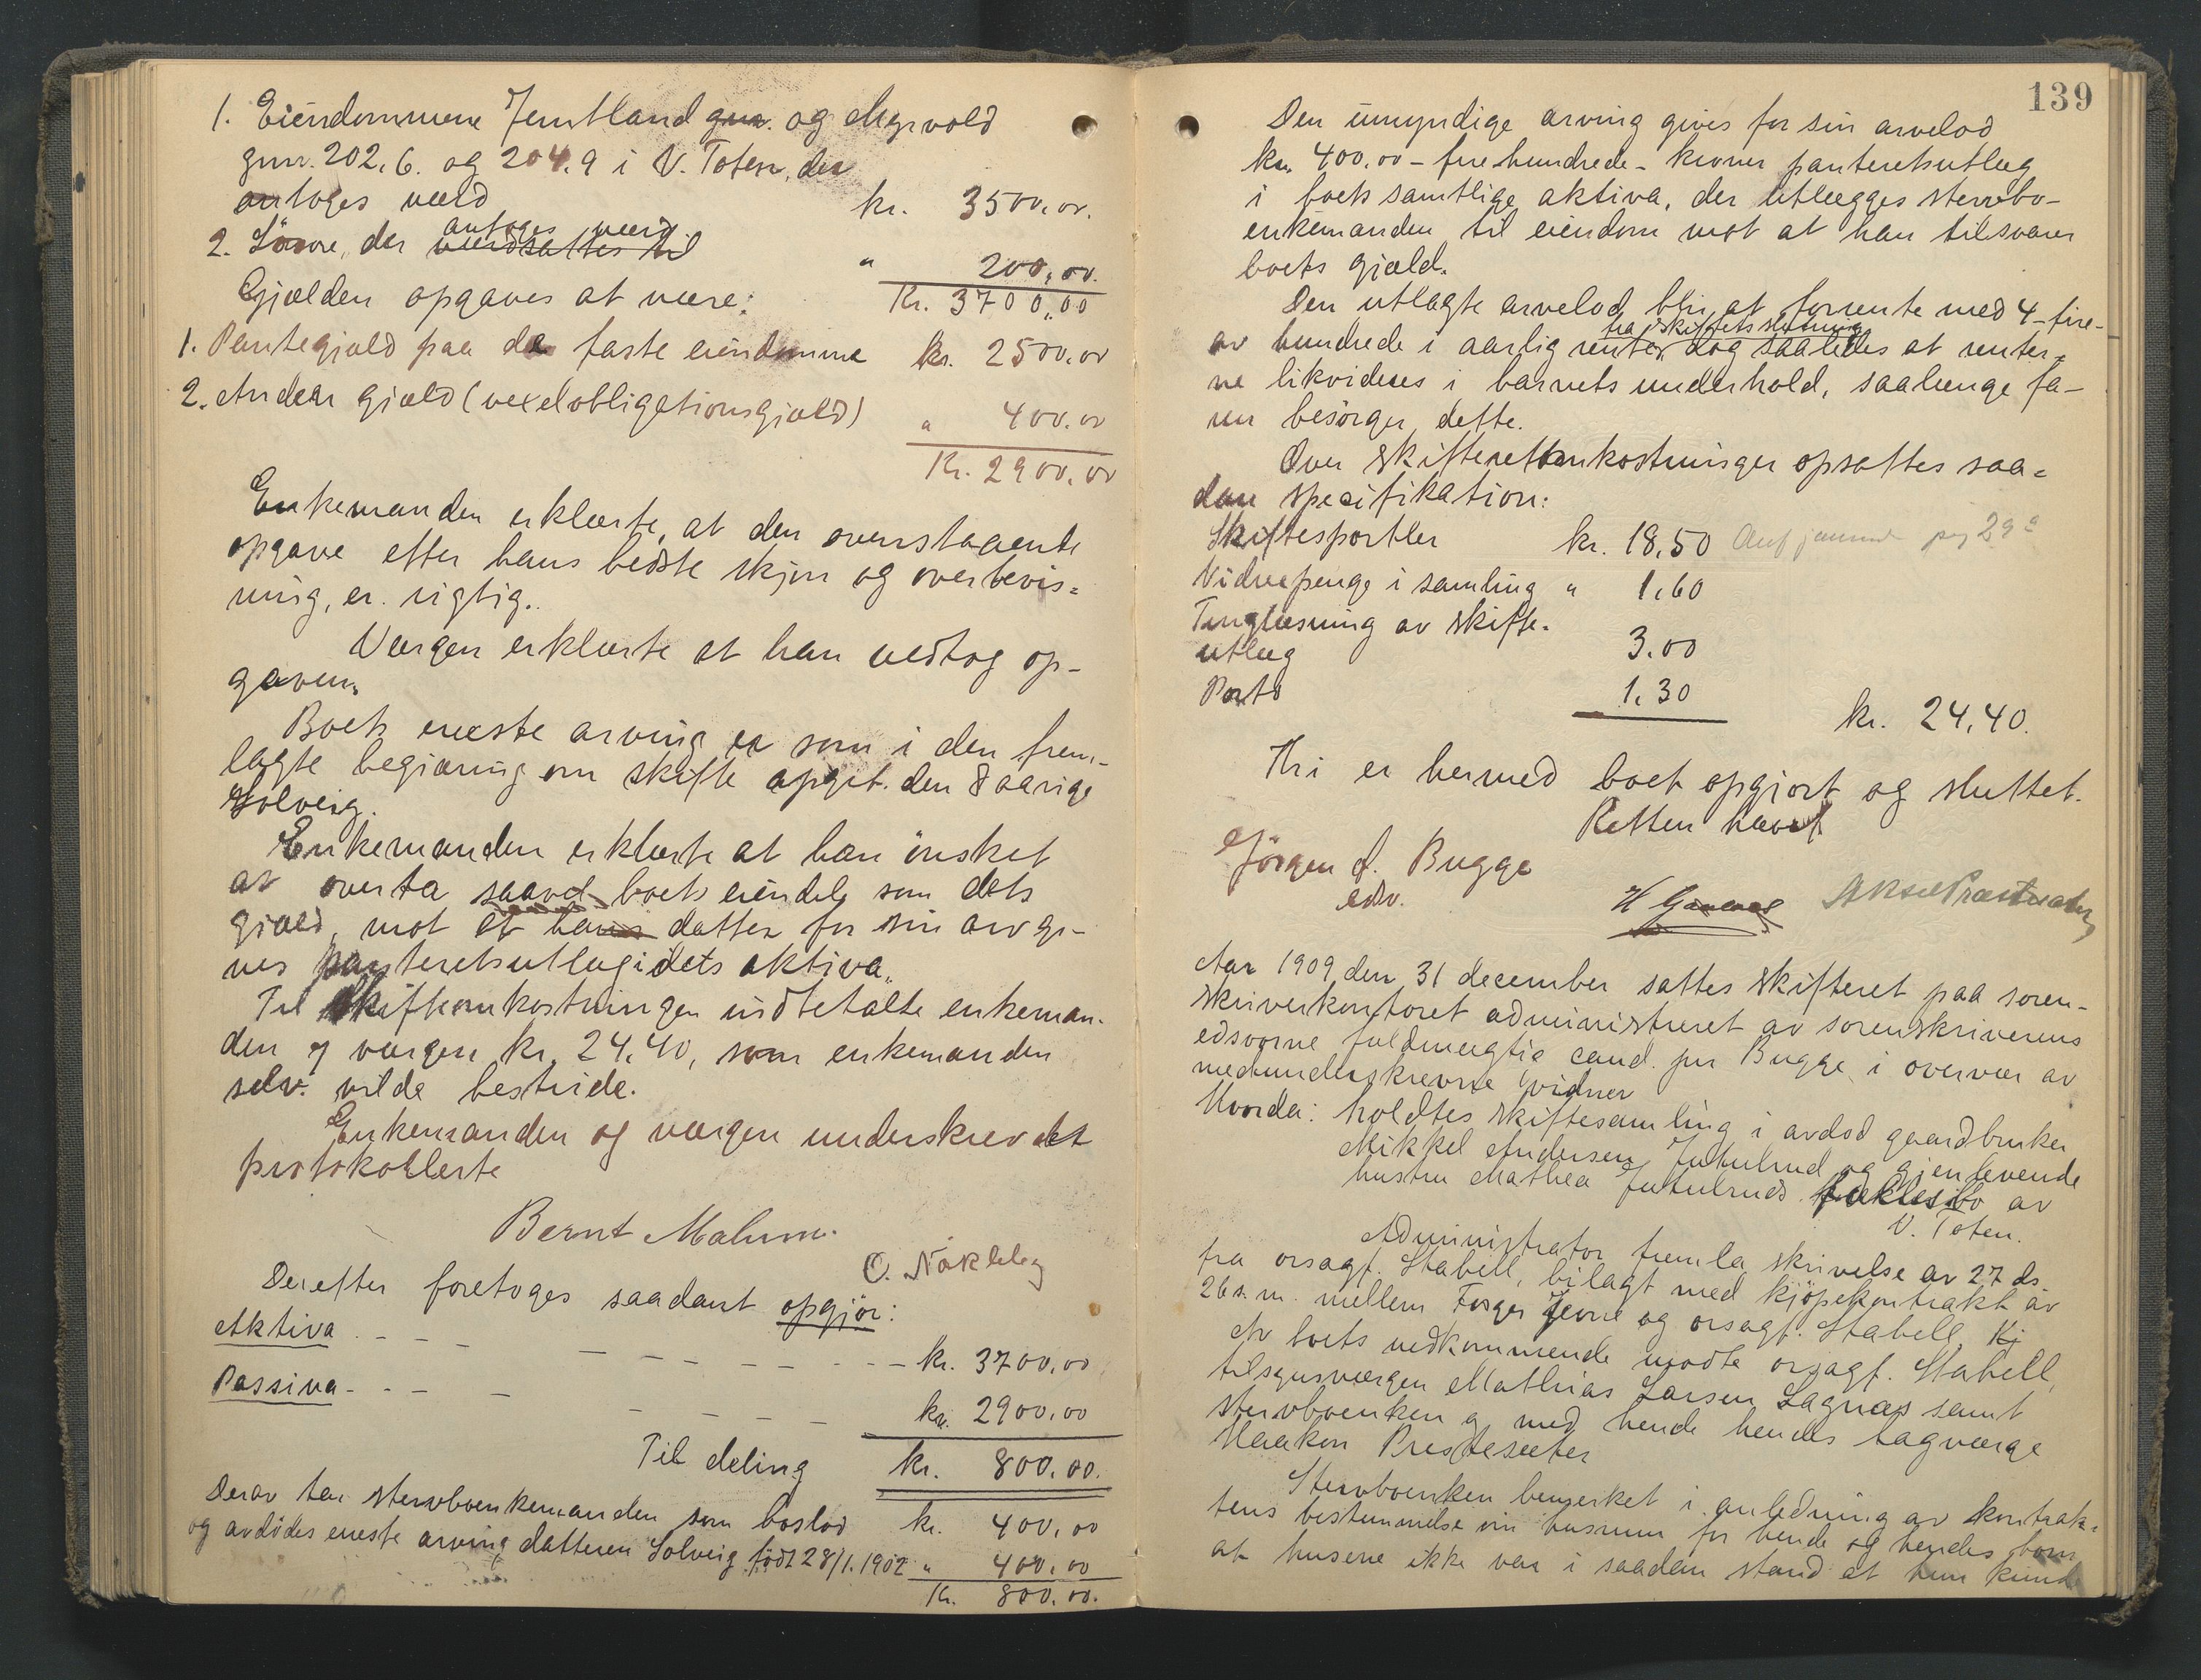 1. Eiendommene Jemtland gnr. og Ihgrvold
gnr. 202.6. og 204.9 i V. Toten, der
antoges værd kr. 3500,00.
2. Lösöre, der antoges værd værdsattes til " 200,00.
Kr. 3700,00
Gjælden opgaves at være:
1. Pantegjæld paa de faste eiendomme kr. 2500,00
2. Anden gjæld (vexelobligationsgjæld) " 400,00
Kr. 2900,00
Enkemanden erklærte, at den ovenstaaende
opgave efter hans bedste skjön og overbevis=
ning, er rigtig.
Værgen erklærte at han vedtog op-
gaven.
Boets eneste arving er som i den frem-
lagte begjæring om skifte opgit den 8 aarige
Solveig.
Enkemanden erklærte at han önsket
at overta saavel boets eiendele som dets
gjæld, mot at hans datter for sin arv gi-
ves panteretsutlæg i dets aktiva.
Til skifteomkostningen indbetalte enkeman-
den og værgen kr. 24,40, som enkemanden
selv vilde bestride.
Enkemanden og værgen underskrev det
protokollerte
Bernt Malum.
O. Nökleby
Derefter foretoges saadant opgjör:
Aktiva - - - - - - - - - kr. 3700,00
Passiva - - - - - - - - kr. 2900,00
Til deling kr. 800,00.
Derav tar stervboenkemanden som boslod kr. 400,00
og avdödes eneste arving datteren Solveig födt 28/1.1902 " 400,00
Kr. 800,00.
139
Den umyndige arving gives for sin arvelod
kr. 400,00 - fire hundrede - kroner panteretsutlæg
i boets samtlige aktiva, der utlægges stervbo-
enkemanden til eiendom mot at han tilsvarer
boets gjæld.
Den utlagte arvelod blir at forrente med 4 - fire -
fra skiftets slutning
av hundrede i aarlig renter dog saaledes at renter=
ne likvideres i barnets underhold, saalænge fa-
ren besörger dette.
Over skifterettsomkostninger opsattes saa=
dan specifikation:
Skiftesportler kr. 18,50
Vidnepenge i samling " 1,60
Tinglæsning av skifte-
utlæg 3.00
Porto 1,30 kr. 24,40.
Ti er hermed boet opgjort og sluttet.
Retten hævet
Jörgen J. Bugge
edsv.
Aksel Præstsæter
Aar 1909 den 31 december sattes skifteret paa soren-
skriverkontoret administreret av sorenskriverens
edsvorne fuldmægtig cand. jur Bugge i overvær av
medunderskrevne vidner
Hvorda: holdtes skiftesamling i avdöd gaardbruker
Mikkel Andersen Jutulrud og gjenlevende
hustru Mathea Jutulruds fællesbo av
V. Toten.
Administrator fremla skrivelse av 27 ds
fra orsagf. Stabell, bilagt med kjöpekontrakt av
26 s. m. mellem Torger Jevne og orsagf. Stabell
Av boets vedkommende mødte orsagf. Stabell,
tilsynsværgen Mathias Larsen Sagnæs samt
stervboenken og med hende hendes lagværge
Haakon Prestesæter
Stervboenken bemerket i anledning av kontrak=
tens bestemmelse om husrum for hende og hendes born
at husene ikke var i saadan stand at hun kunde